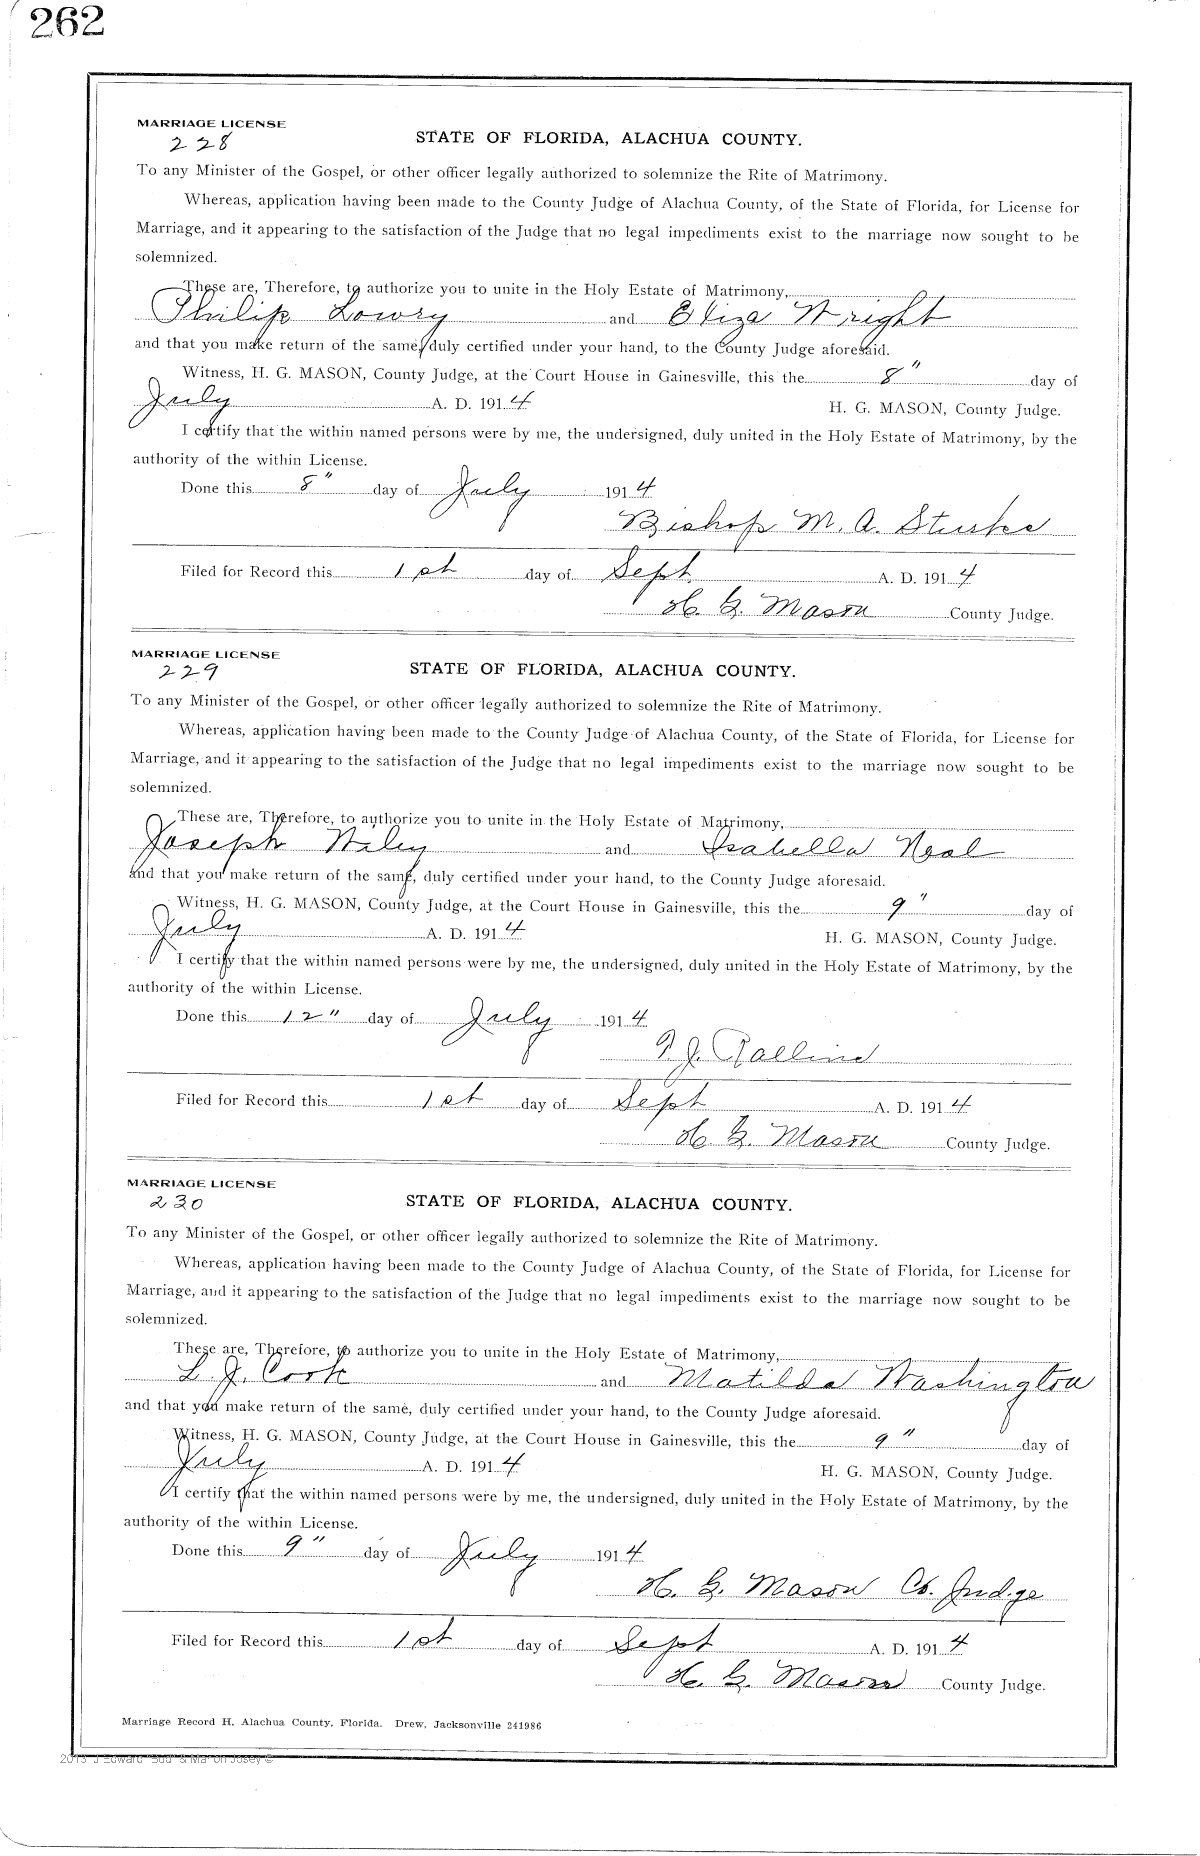 262
MARRIAGE LICENSE
228
STATE OF FLORIDA, ALACHUA COUNTY.
To any Minister of the Gospel, or other officer legally authorized to solemnize the Rite of Matrimony.
Whereas, application having been made to the County Judge of Alachua County, of the State of Florida, for License for
Marriage, and it appearing to the satisfaction of the Judge that no legal impediments exist to the marriage now sought to be
solemnized.
These are, Therefore, to authorize you to unite in the Holy Estate of Matrimony,
Philip Lowry and Eliza Wright
and that you make return of the same, duly certified under your hand, to the County Judge aforesaid.
Witness, H. G. MASON, County Judge, at the Court House in Gainesville, this the 8" day of
July A. D. 1914 H. G. MASON, County Judge.
I certify that the within named persons were by me, the undersigned, duly united in the Holy Estate of Matrimony, by the
authority of the within License.
Done this 8" day of July 1914
Bishop M. A.
Filed for Record this 1st day of Sept A. D. 1914
H. G. Mason County Judge.
MARRIAGE LICENSE
229
STATE OF FLORIDA, ALACHUA COUNTY.
To any Minister of the Gospel, or other officer legally authorized to solemnize the Rite of Matrimony.
Whereas, application having been made to the County Judge of Alachua County, of the State of Florida, for License for
Marriage, and it appearing to the satisfaction of the Judge that no legal impediments exist to the marriage now sought to be
solemnized.
These are, Therefore, to authorize you to unite in the Holy Estate of Matrimony,
Joseph Wiley and Isabella Neal
and that you make return of the same, duly certified under your hand, to the County Judge aforesaid.
Witness, H. G. MASON, County Judge, at the Court House in Gainesville, this the 9" day of
July A. D. 1914 H. G. MASON, County Judge.
I certify that the within named persons were by me, the undersigned, duly united in the Holy Estate of Matrimony, by the
authority of the within License.
Done this 12" day of July 1914
J.
Filed for Record this 1st day of Sept A. D. 1914
H. G. Mason County Judge.
MARRIAGE LICENSE
230
STATE OF FLORIDA, ALACHUA COUNTY.
To any Minister of the Gospel, or other officer legally authorized to solemnize the Rite of Matrimony.
Whereas, application having been made to the County Judge of Alachua County, of the State of Florida, for License for
Marriage, and it appearing to the satisfaction of the Judge that no legal impediments exist to the marriage now sought to be
solemnized.
These are, Therefore, to authorize you to unite in the Holy Estate of Matrimony,
L. J. Cook and Matilda Washington
and that you make return of the same, duly certified under your hand, to the County Judge aforesaid.
Witness, H. G. MASON, County Judge, at the Court House in Gainesville, this the 9" day of
July A. D. 1914 H. G. MASON, County Judge.
I certify that the within named persons were by me, the undersigned, duly united in the Holy Estate of Matrimony, by the
authority of the within License.
Done this 9" day of July 1914
H. G. Mason Co. Judge
Filed for Record this 1st day of Sept A. D. 1914
H. G. Mason County Judge.
Marriage Record H, Alachua County, Florida. Drew, Jacksonville 241986
2013 J Edward "Bud" & Marion Josey ©